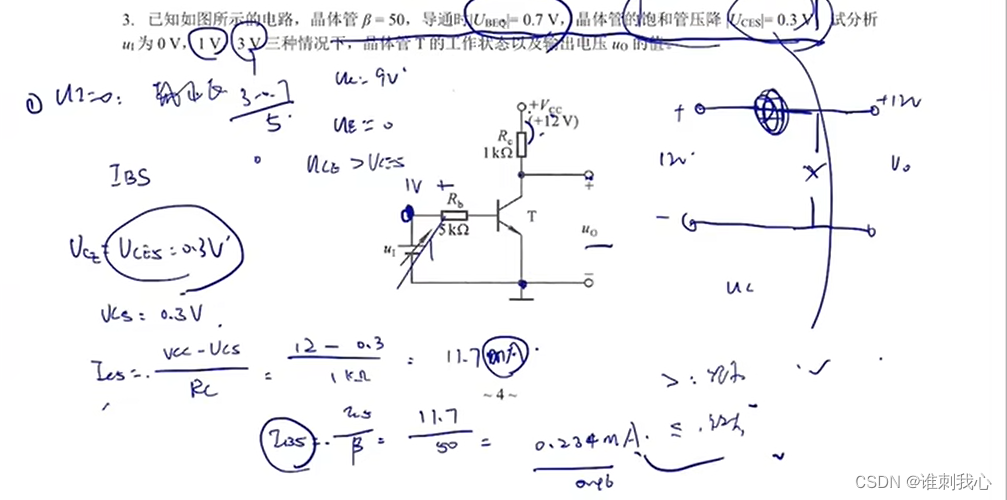 3. 已知如图所示的电路，晶体管 β = 50，导通时|UBEQ|= 0.7 V，晶体管的饱和管压降|UCES|= 0.3 V，试分析
uI为 0 V，1 V，3 V三种情况下，晶体管 T 的工作状态以及输出电压 uO 的值。
① UI=0:
3-0.7
5
Uc=9V
UE=0
UCE > UCES
IBS
UCE=UCES=0.3V
UCS: 0.3V
ICS=
VCC-UCS
RC
=
12-0.3
1kΩ
= 11.7mA
IBS=
ICS
β
=
11.7
50
= 0.234mA.
≤
>
+VCC
(+12 V)
Rc
1 kΩ
1V +
Rb
5 kΩ
T
uI
+
uO
−
+
+12V
12V
Uo
-
UC
~ 4 ~
CSDN @谁刺我心